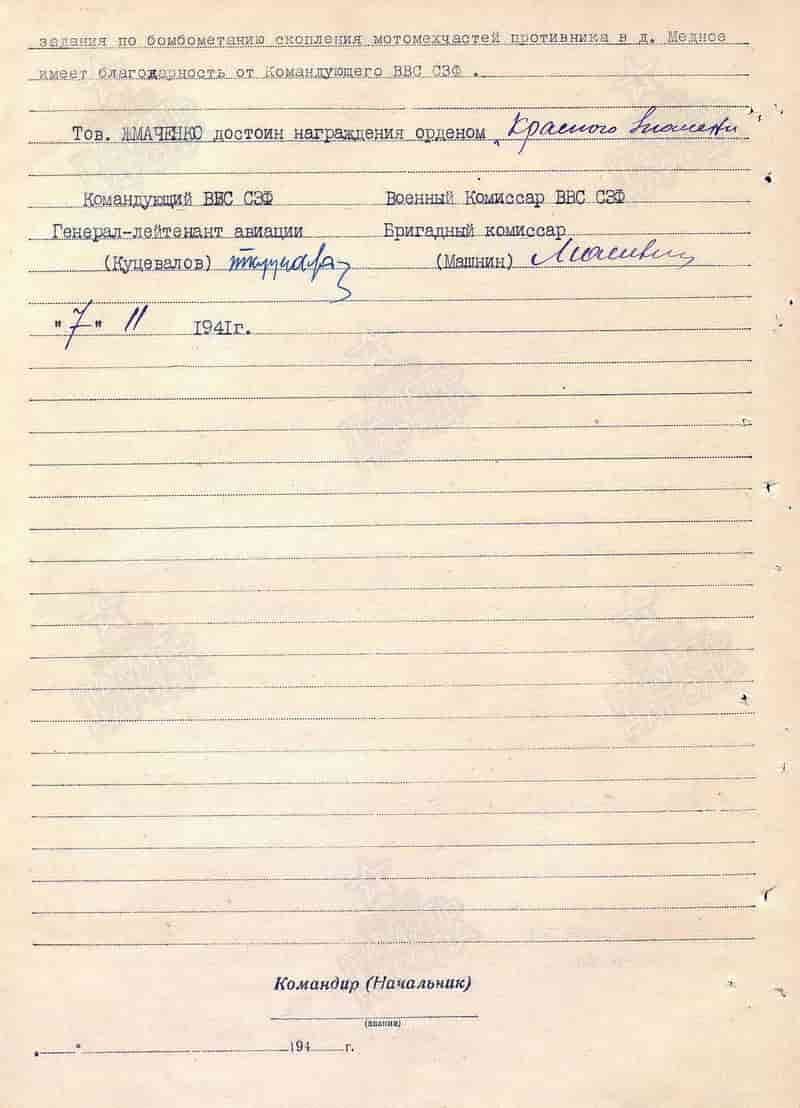 задания по бомбометанию скопления мотомехчастей противника в д. Медное
имеет благодарность от Командующего ВВС СЗФ .
Тов. ЖМАЧЕНКО достоин награждения орденом Красного Знамени
Командующий ВВС СЗФ Военный Комиссар ВВС СЗФ
Генерал-лейтенант авиации Бригадный комиссар
(Куцевалов) (Машнин) Машнин
"7" 11 1941г.
Командир (Начальник)
(звание)
„ " 194 г.